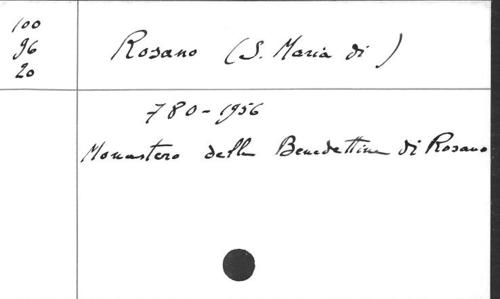 100
96
20
Rosano (S. Maria di)
780-1956
Monastero delle Benedettine di Rosano